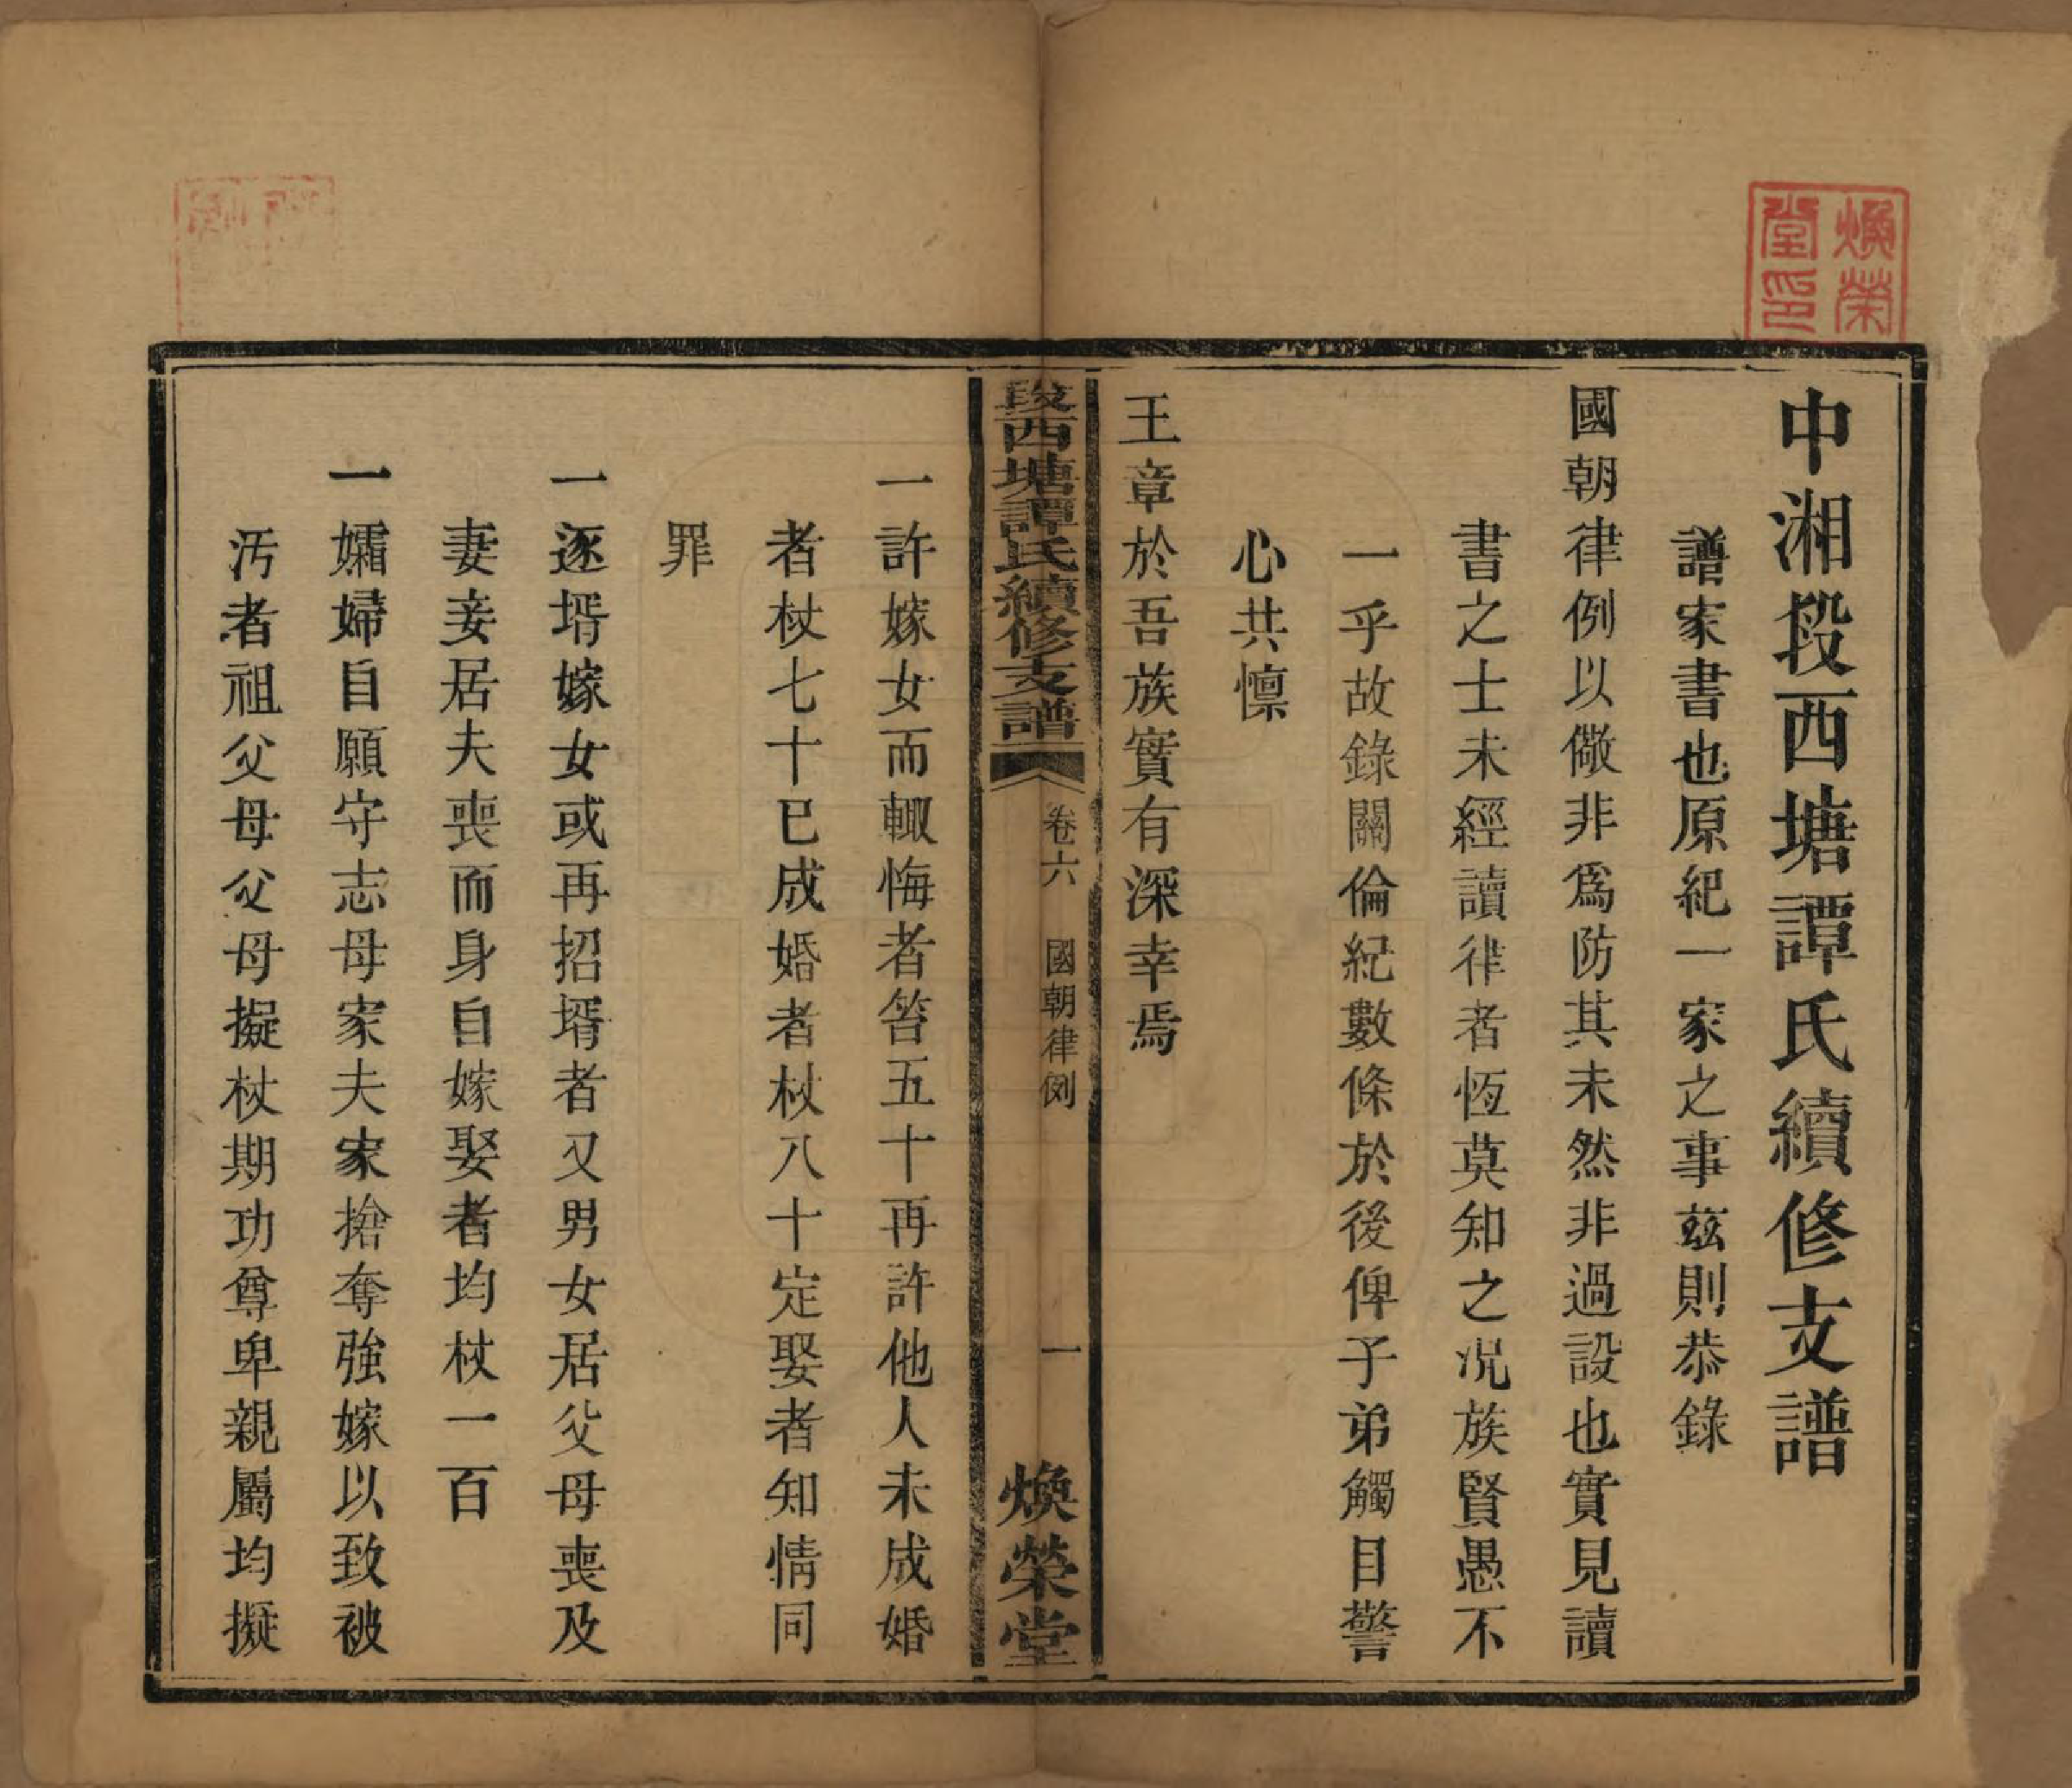 中湘段西塘譚氏續修支譜
譜家書也原紀一家之事茲則恭錄
國朝律例以儆非爲防其未然非過設也實見讀
書之士未經讀律者恆莫知之况族賢愚不
一乎故錄關倫紀數條於後俾子弟觸目警
心共懍
王章於吾族實有深幸焉
段西塘譚氏續修支譜
卷六 國朝律例
一
煥榮堂
一許嫁女而輙悔者笞五十再許他人未成婚
者杖七十已成婚者杖八十定娶者知情同
罪
一逐壻嫁女或再招壻者又男女居父母喪及
妻妾居夫喪而身自嫁娶者均杖一百
一孀婦自願守志母家夫家搶奪強嫁以致被
汚者祖父母父母擬杖期功尊卑親屬均擬
煥榮
堂印